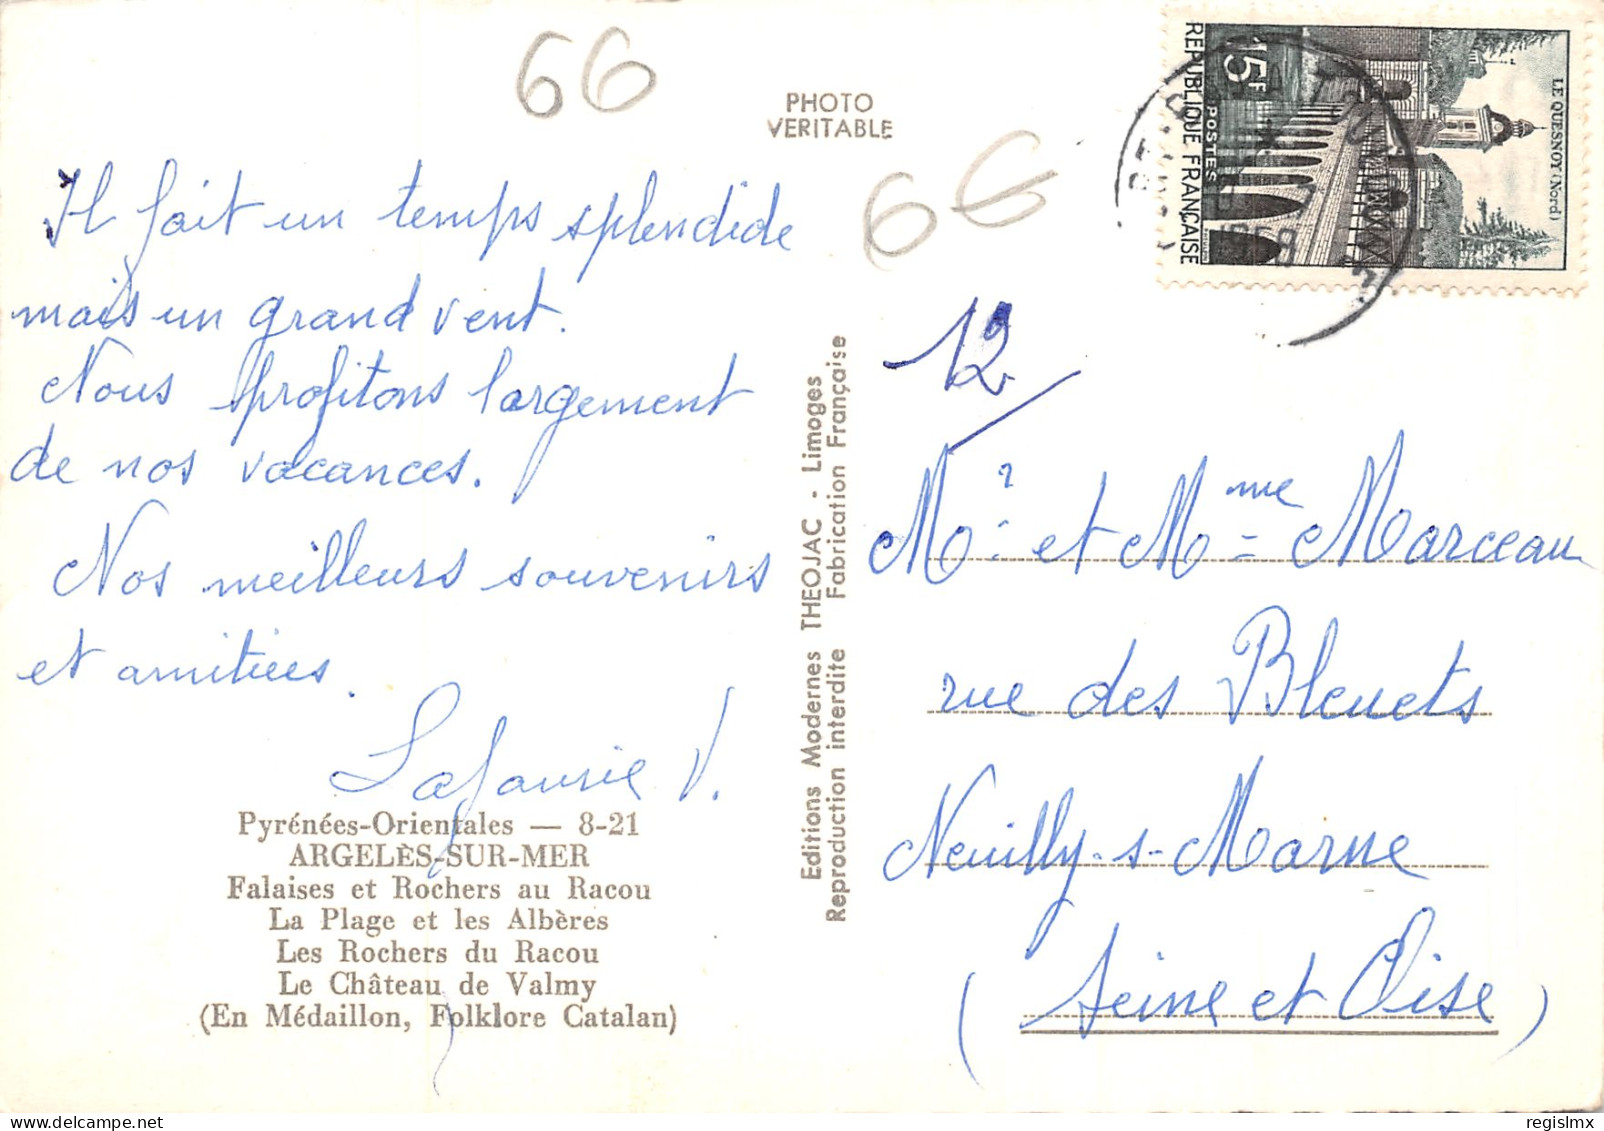 66
PHOTO
VERITABLE
66
Il fait un temps splendide
mais un grand vent.
Nous profitons largement
de nos vacances.
Nos meilleurs souvenirs
et amitiées.
Lafaurie V.
Pyrénées-Orientales — 8-21
ARGELÈS-SUR-MER
Falaises et Rochers au Racou
La Plage et les Albères
Les Rochers du Racou
Le Château de Valmy
(En Médaillon, Folklore Catalan)
Editions Modernes THEOJAC - Limoges
Reproduction interdite Fabrication Française
REPUBLIQUE FRANÇAISE
15F
POSTES
LE QUESNOY (Nord)
12
Mr et Mme Marceau
rue des Bleuets
Neuilly-s-Marne
(Seine et Oise)
regislmx